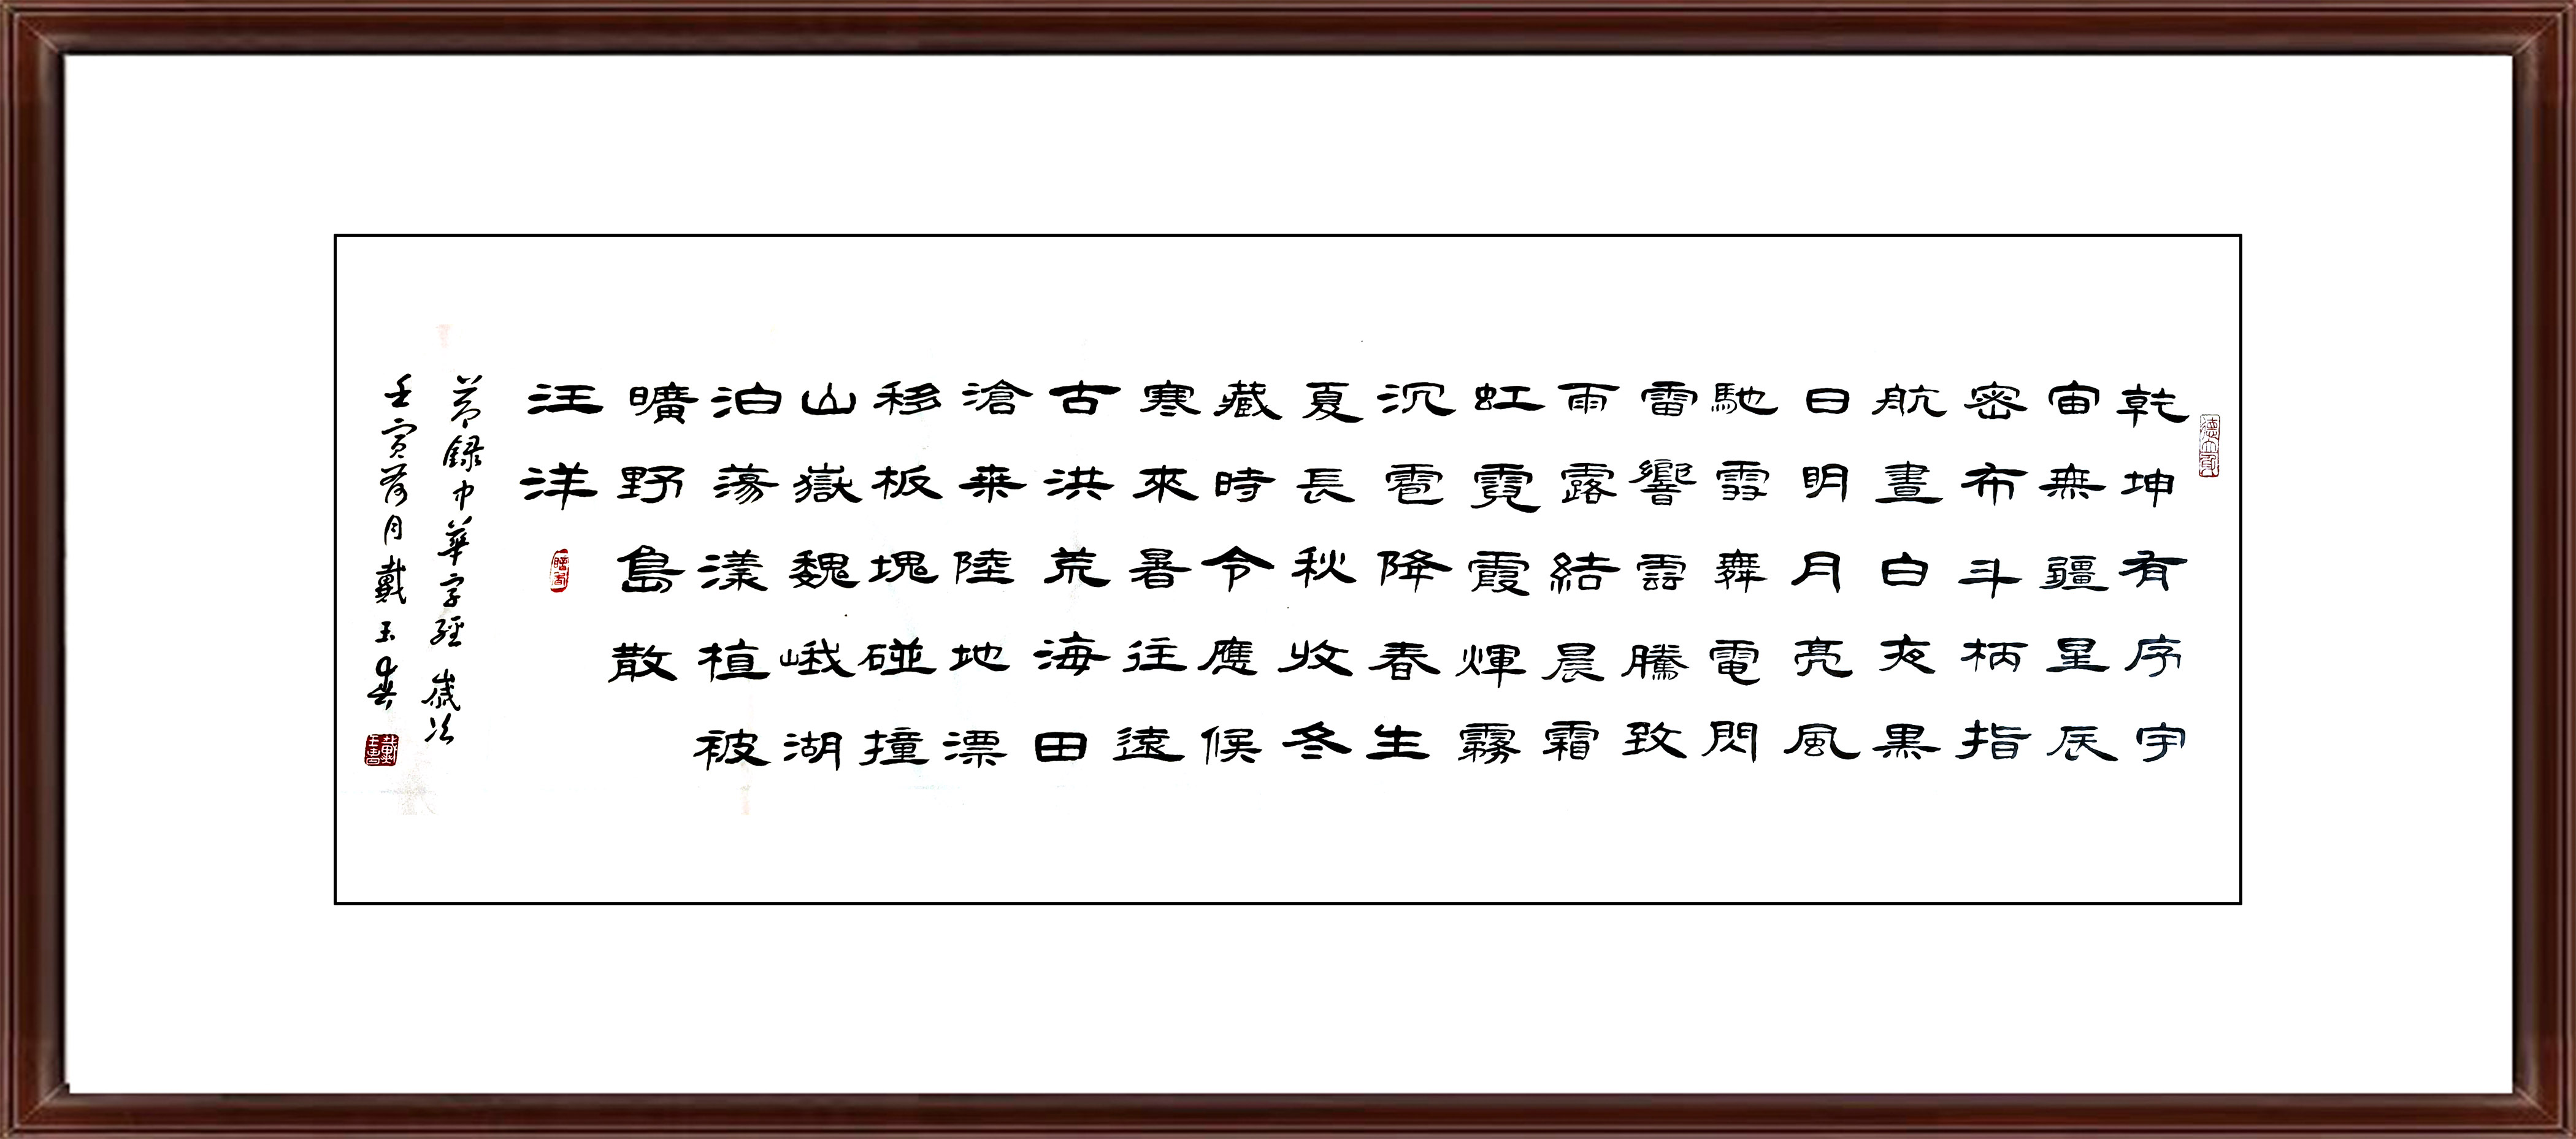 乾坤有序宇
宙無疆星辰
密布斗柄指
航晝白夜黑
日明月亮風
馳雪舞電閃
雷響雲騰致
雨露結晨霜
虹霓霞煇霧
沉雹降春生
夏長秋收冬
藏時令應候
寒來暑往遠
古洪荒海田
滄桒陸地漂
移板塊碰撞
山嶽魏峨湖
泊蕩漾植被
曠野島散
汪洋
節録中華字經歲次
壬寅荷月戴玉